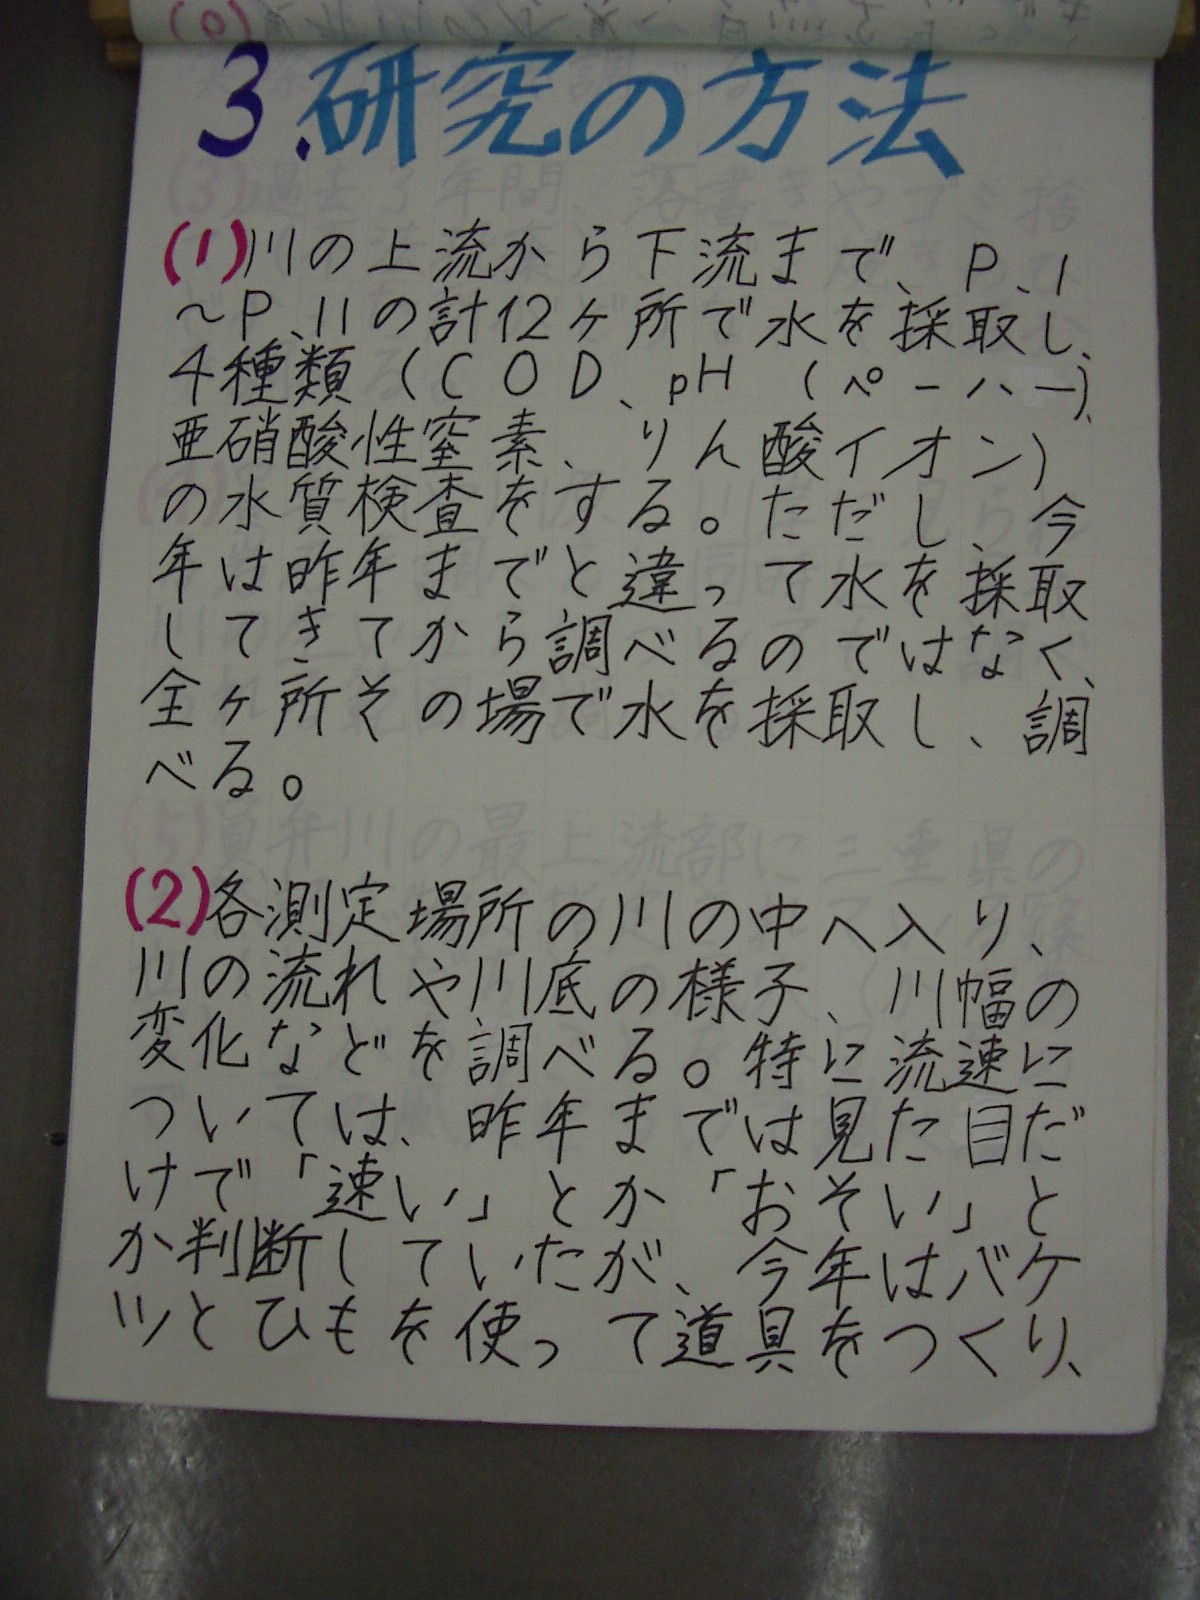 3.研究の方法
(1)川の上流から下流まで、P、1
～P、11の計12ヶ所で水を採取し、
4種類(COD、pH(ペーハー)、
亜硝酸性窒素、りん酸イオン)
の水質検査をする。ただし、今
年は昨年までと違って水を採取
してきてから調べるのではなく、
全ヶ所その場で水を採取し、調
べる。
(2)各測定場所の川の中へ入り、
川の流れや川底の様子、川幅の
変化などを調べる。特に流速に
ついては、昨年までは見た目だ
けで「速い」とか「おそい」と
か判断していたが、今年はバケ
ツとひもを使って道具をつくり、